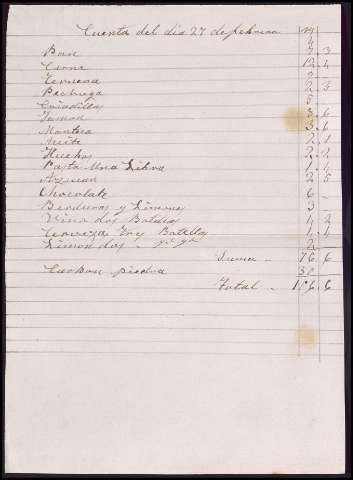 Cuenta del dia 27 de febrero
Pan 7 3
Carne 12 4
Ternera 2
Pechuga 2 3
Criadillas 5
Jamon 3 6
Manteca 3.6
Aceite 2 1
Huebos 2.2
Pasta Una Libra 1 4
Azucar 2 5
Chocolate 6 -
Berduras y Limones 3
Vino dos Botellas 4 2
Cerveza Tres Botellas 1.4
Limon dos 2
Suma - 76 6
Carbon piedra 30
Total - 106 6